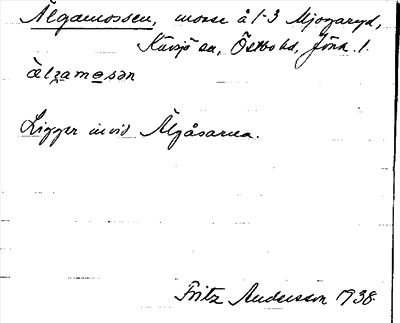 Älgamossen, mosse å 1-3 Mjogaryd,
Kävsjö sn, Östbo hd, Jönk. l.
ä̀lgamosən
Ligger invid Älgåsarna.
Fritz Andersson 1938